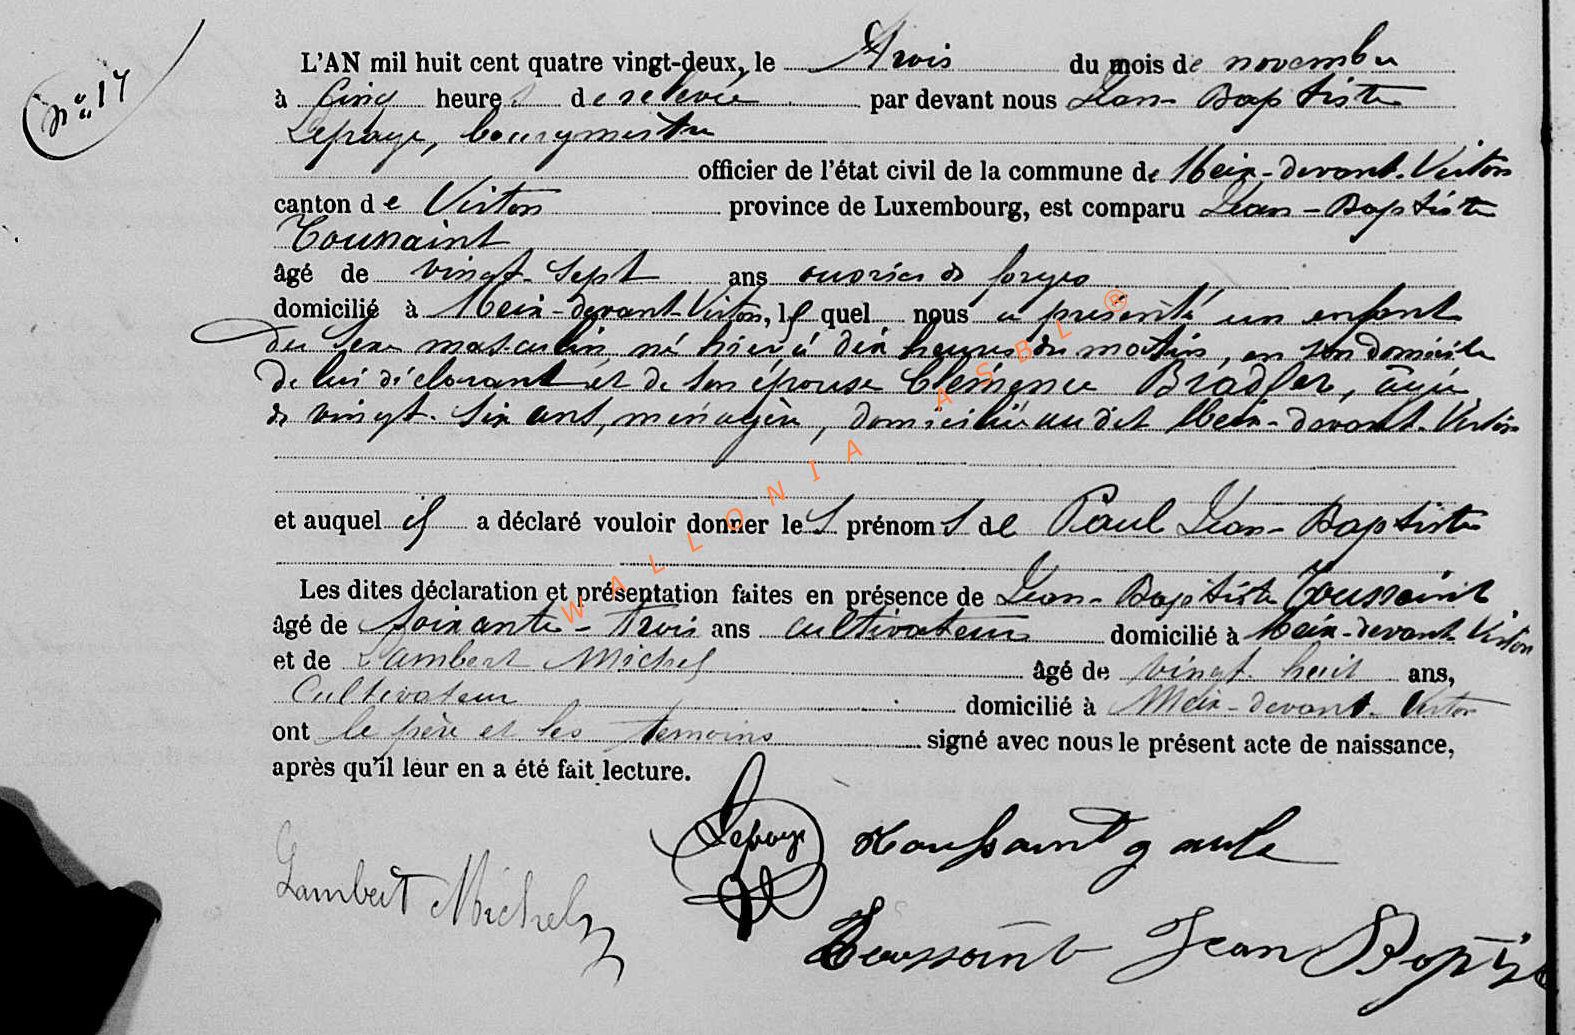 N° 17
L'AN mil huit cent quatre vingt-deux, le Trois du mois de novembre
à Cinq heures de relevée par devant nous Jean-Baptiste
Lepage, bourgmestre
officier de l'état civil de la commune de Meix-devant-Virton
canton de Virton province de Luxembourg, est comparu Jean-Baptiste
Toussaint
âgé de vingt-sept ans ouvrier de forges
domicilié à Meix-devant-Virton, lequel nous a présenté un enfant
du sexe masculin, né hier à dix heures du matin, en son domicile
de lui déclarant et de son épouse Clémence Bradfer, âgée
de vingt-six ans, ménagère, domiciliée au dit Meix-devant-Virton
et auquel il a déclaré vouloir donner les prénoms de Paul Jean-Baptiste
Les dites déclaration et présentation faites en présence de Jean-Baptiste Toussaint
âgé de soixante-trois ans cultivateur domicilié à Meix-devant-Virton
et de Lambert Michel âgé de vingt-huit ans,
Cultivateur domicilié à Meix-devant-Virton
ont le père et les témoins signé avec nous le présent acte de naissance,
après qu'il leur en a été fait lecture.
Lepage Toussaint
Lambert Michel
Toussaint Jean Baptiste
WALLONIA ASBL ®